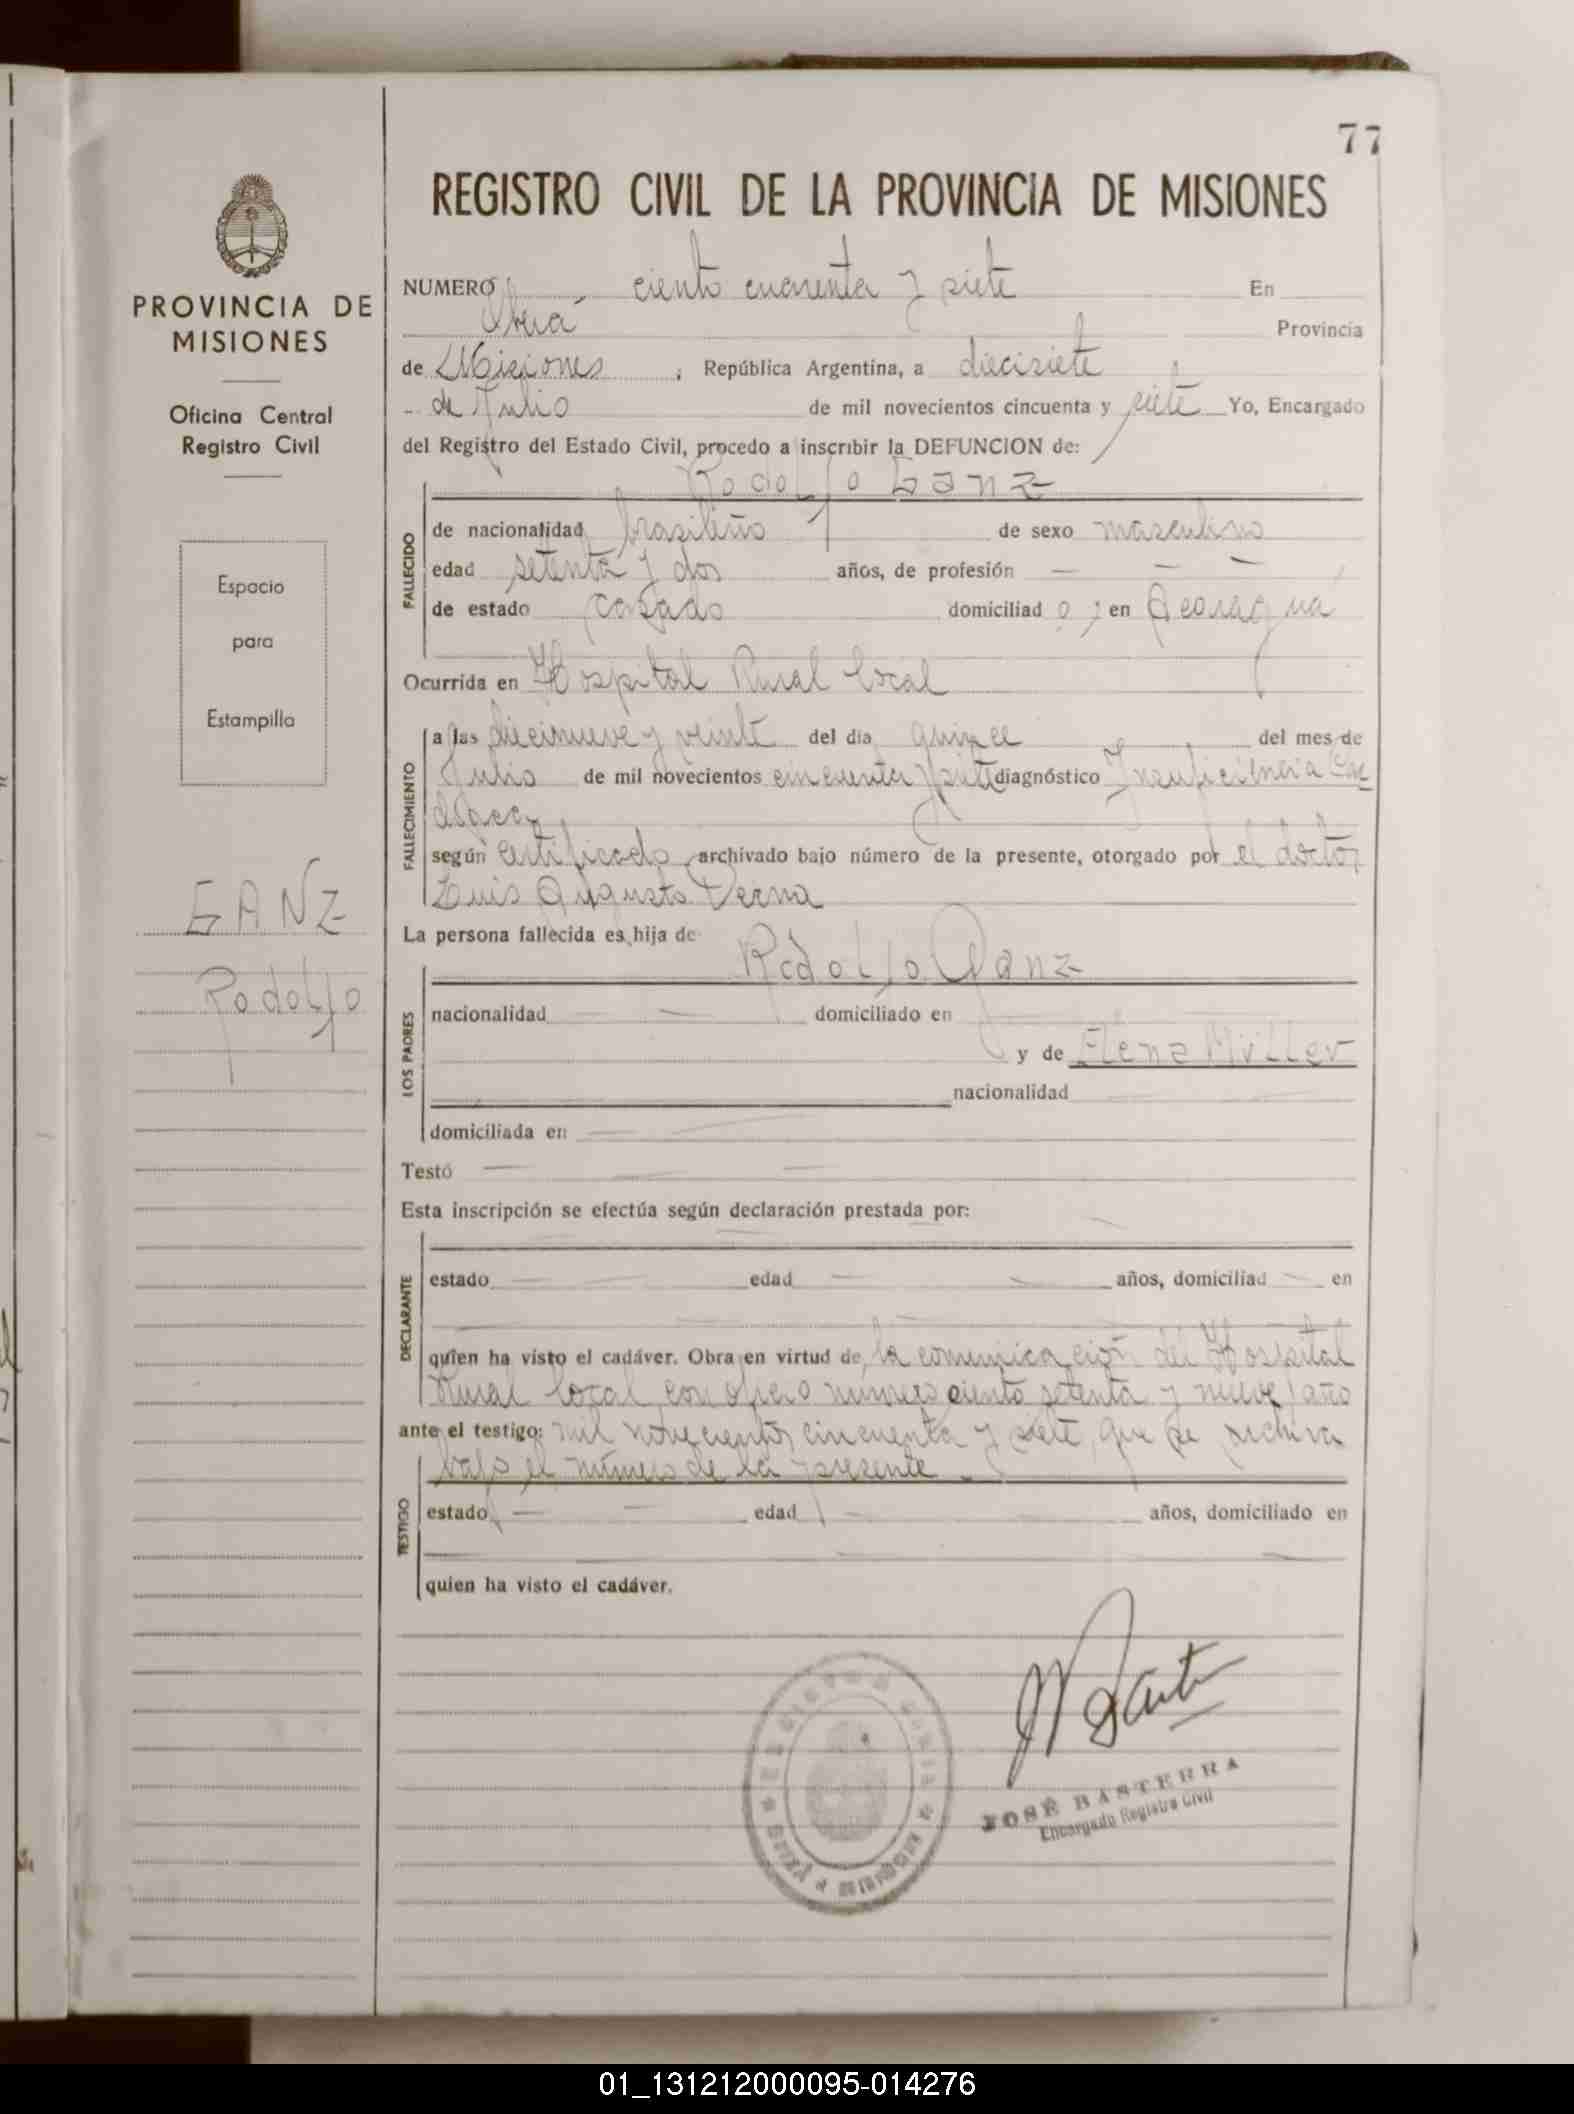 77
REGISTRO CIVIL DE LA PROVINCIA DE MISIONES
PROVINCIA DE
MISIONES
Oficina Central
Registro Civil
Espacio
para
Estampilla
GANZ
Rodolfo
NUMERO ciento cuarenta y siete En
Oberá Provincia
de Misiones, República Argentina, a diecisiete
de Julio de mil novecientos cincuenta y siete Yo, Encargado
del Registro del Estado Civil, procedo a inscribir la DEFUNCION de:
Rodolfo Ganz
FALLECIDO
de nacionalidad brasileño de sexo masculino
edad setenta y dos años, de profesión — — —
de estado casado domiciliado en
Ocurrida en Hospital Rural local
FALLECIMIENTO
a las diecinueve y veinte del día quince del mes de
Julio de mil novecientos cincuenta y siete diagnóstico Insuficiencia Car
díaca
según certificado archivado bajo número de la presente, otorgado por el doctor
Luis Augusto Verna
La persona fallecida es hija de
Rodolfo Ganz
LOS PADRES
nacionalidad — — domiciliado en
y de Elena Müller
nacionalidad
domiciliada en —
Testó — — —
Esta inscripción se efectúa según declaración prestada por:
DECLARANTE
estado — — edad — — años, domiciliad — en
quien ha visto el cadáver. Obra en virtud de la comunicación del Hospital
Rural local con oficio número ciento setenta y nueve, año
ante el testigo: mil novecientos cincuenta y siete, que se archiva
bajo el número de la presente.
TESTIGO
estado — — edad — años, domiciliado en
quien ha visto el cadáver.
JOSÉ BASTERRA
Encargado Registro Civil
01_131212000095-014276